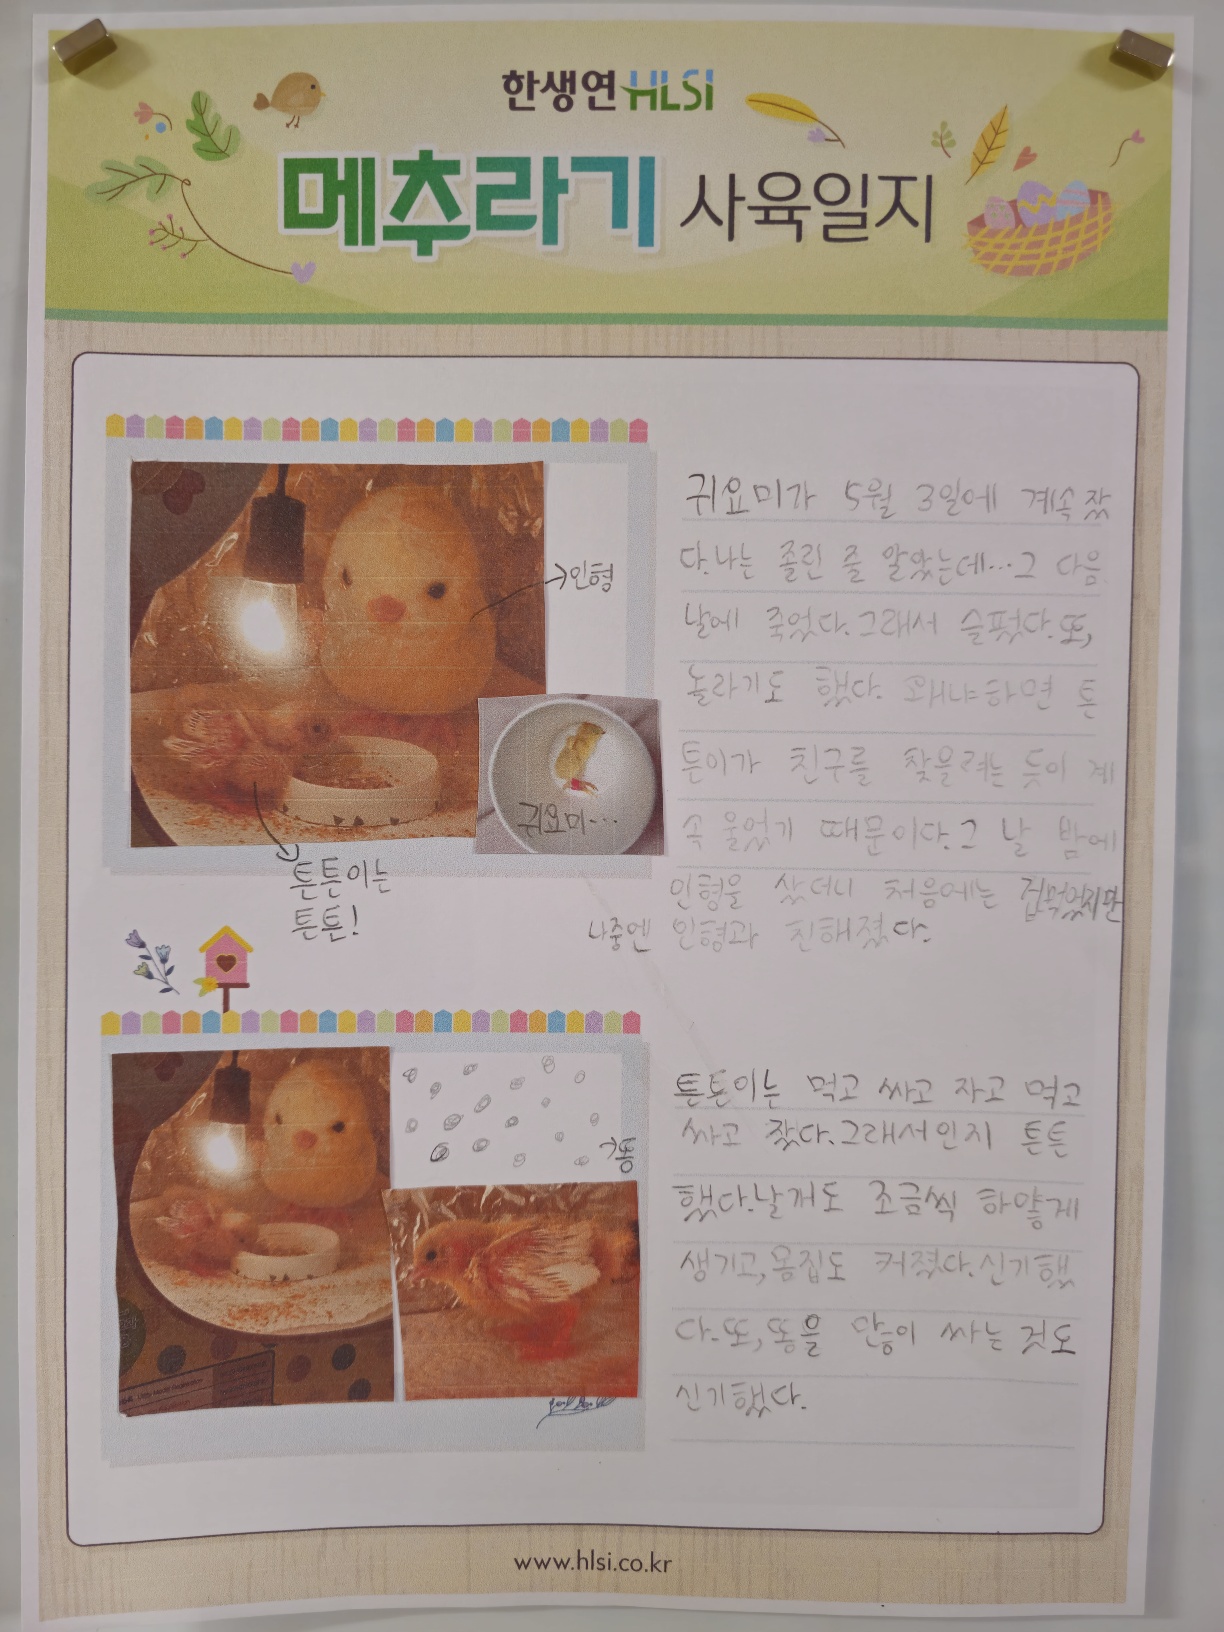 한생연 HLSI
메추라기 사육일지
귀요미가 5월 3일에 계속 잤
다.나는 졸린 줄 알았는데…그 다음
날에 죽었다.그래서 슬펐다.또,
놀라기도 했다. 왜냐하면 튼
튼이가 친구를 찾을려는 듯이 계
속 울었기 때문이다.그 날 밤에
인형을 샀더니 처음에는 겁먹었지만
나중엔 인형과 친해졌다.
→인형
귀요미…
튼튼이는
튼튼!
튼튼이는 먹고 싸고 자고 먹고
싸고 잤다.그래서인지 튼튼
했다.날개도 조금씩 하얗게
생기고,몸집도 커졌다.신기했
다.또,똥을 많이 싸는 것도
신기했다.
똥
www.hlsi.co.kr